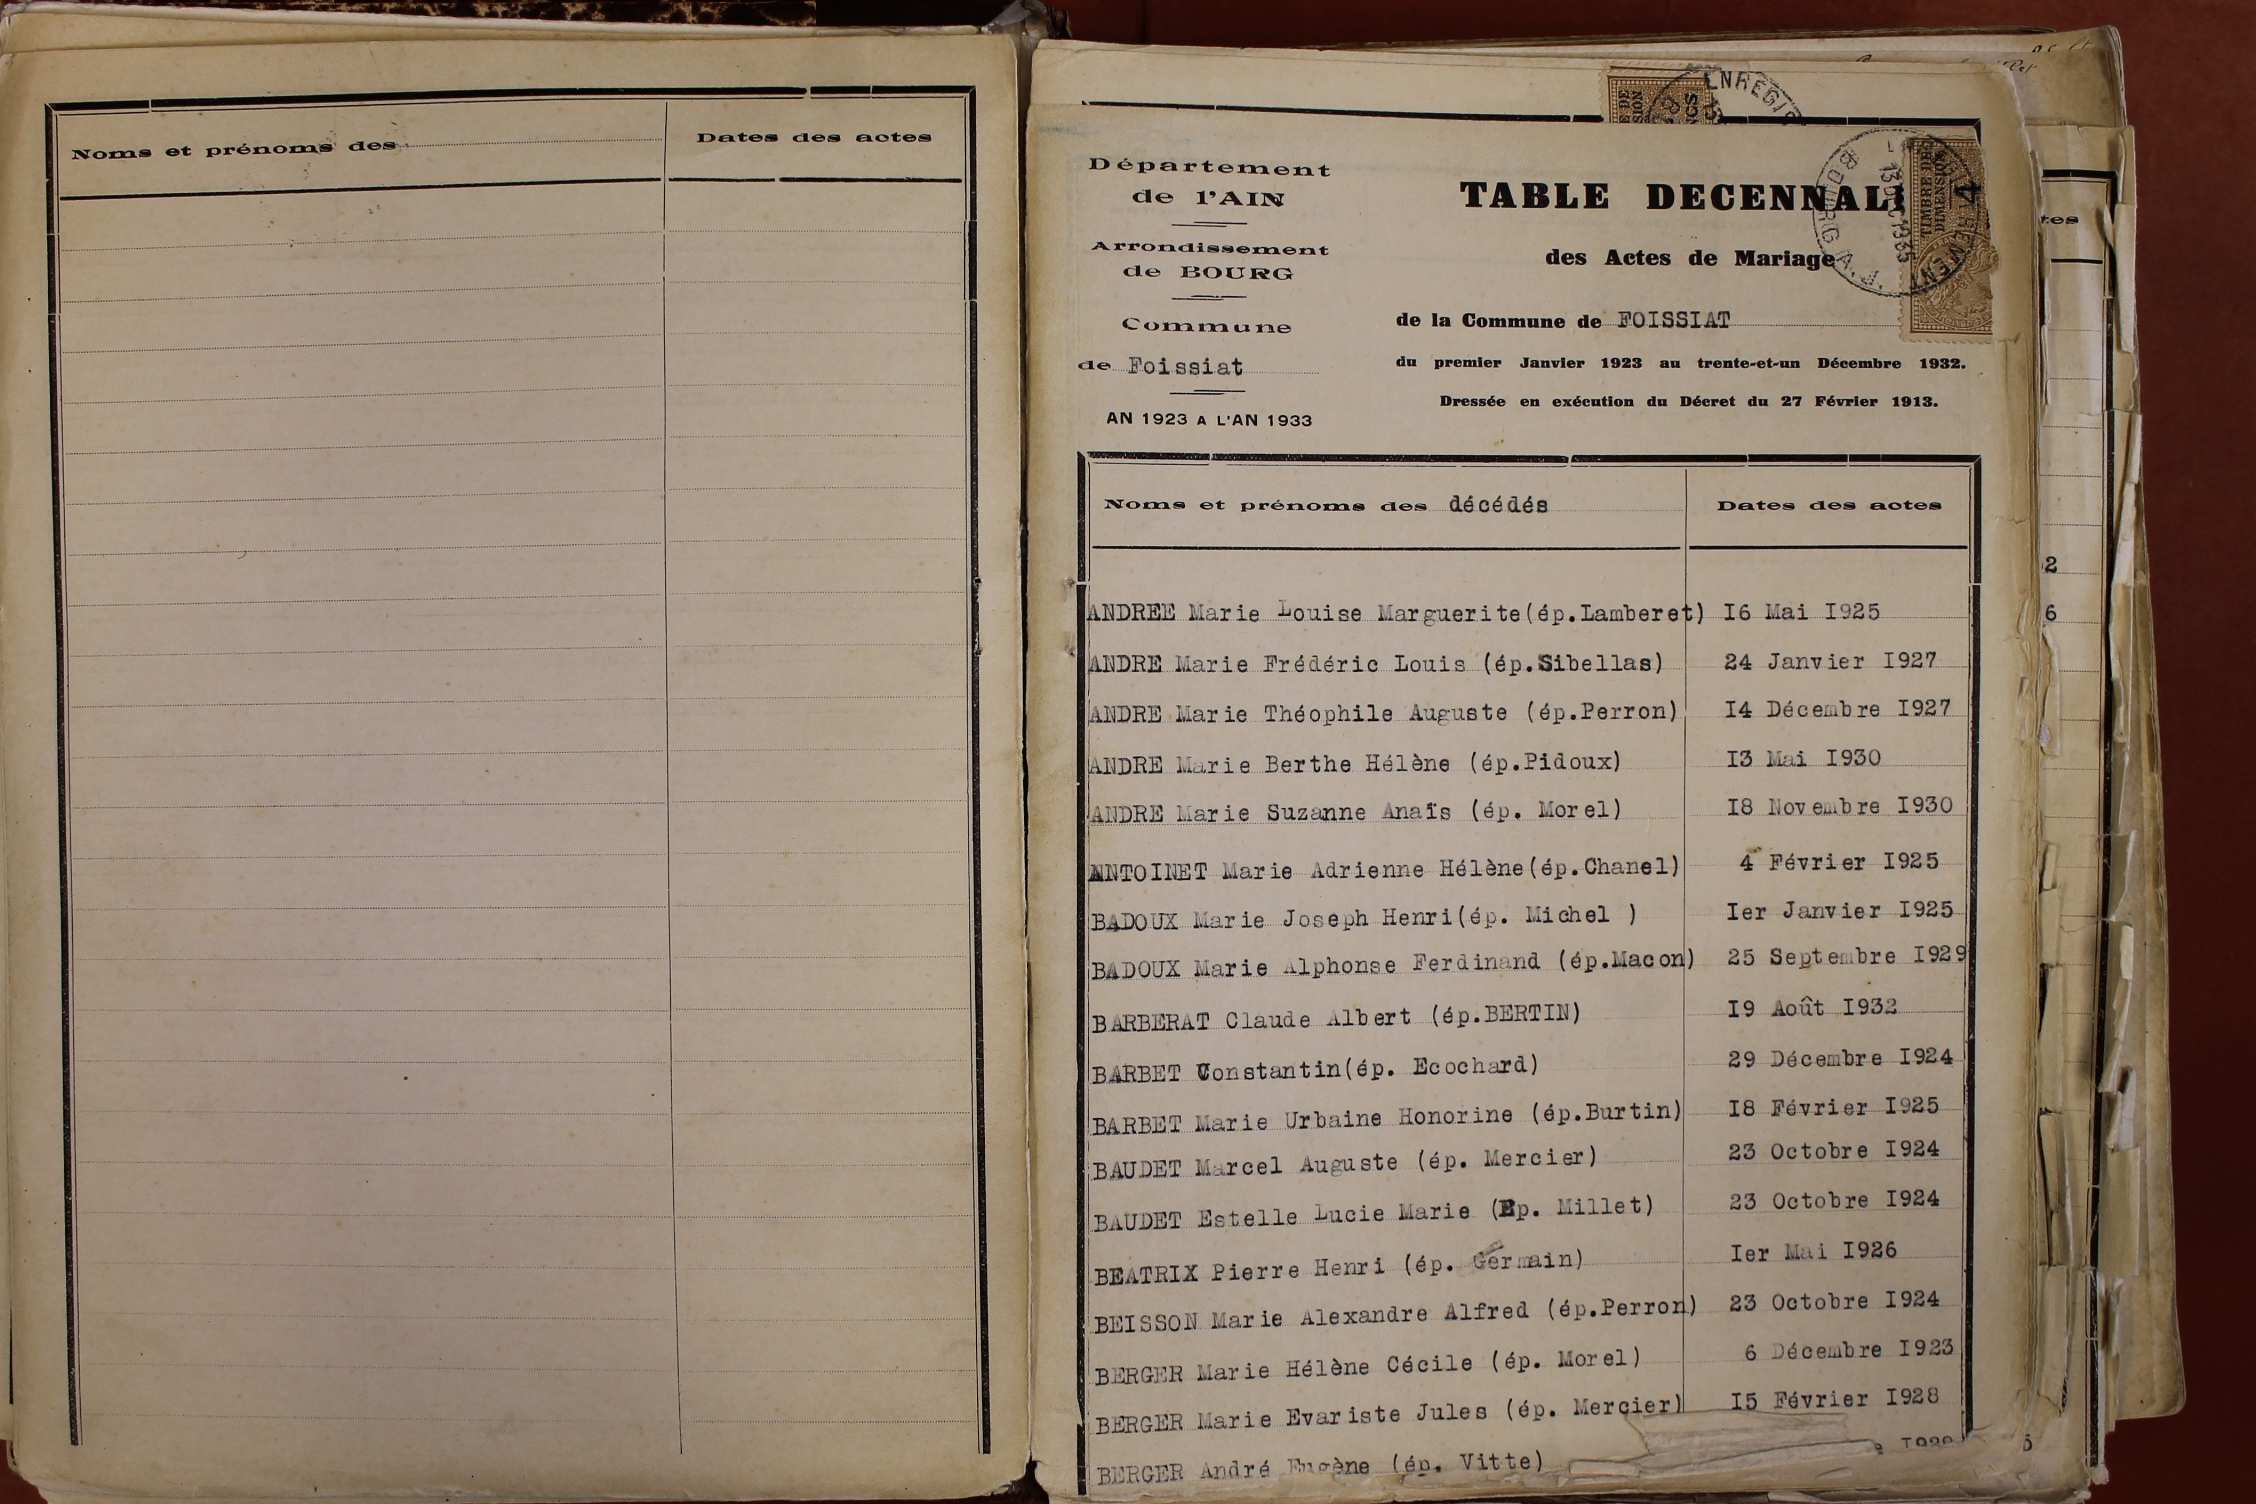 Noms et prénoms des
Dates des actes
Département
de l'AIN
Arrondissement
de BOURG
Commune
de Foissiat
AN 1923 A L'AN 1933
TABLE DECENNAL
des Actes de Mariage
de la Commune de FOISSIAT
du premier Janvier 1923 au trente-et-un Décembre 1932.
Dressée en exécution du Décret du 27 Février 1913.
TIMBRE DE
DIMENSION
BOURG A.J.
13 DEC 1935
Noms et prénoms des décédés Dates des actes
ANDREE Marie Louise Marguerite(ép.Lamberet) I6 Mai I925
ANDRE Marie Frédéric Louis (ép.Sibellas) 24 Janvier I927
ANDRE Marie Théophile Auguste (ép.Perron) I4 Décembre I927
ANDRE Marie Berthe Hélène (ép.Pidoux) I3 Mai I930
ANDRE Marie Suzanne Anaïs (ép. Morel) I8 Novembre I930
ANTOINET Marie Adrienne Hélène(ép.Chanel) 4 Février I925
BADOUX Marie Joseph Henri(ép. Michel ) Ier Janvier I925
BADOUX Marie Alphonse Ferdinand (ép.Macon) 25 Septembre I929
BARBERAT Claude Albert (ép.BERTIN) I9 Août I932
BARBET Constantin(ép. Ecochard) 29 Décembre I924
BARBET Marie Urbaine Honorine (ép.Burtin) I8 Février I925
BAUDET Marcel Auguste (ép. Mercier) 23 Octobre I924
BAUDET Estelle Lucie Marie (Ep. Millet) 23 Octobre I924
BEATRIX Pierre Henri (ép. Germain) Ier Mai I926
BEISSON Marie Alexandre Alfred (ép.Perron) 23 Octobre I924
BERGER Marie Hélène Cécile (ép. Morel) 6 Décembre I923
BERGER Marie Evariste Jules (ép. Mercier) I5 Février I928
BERGER André Eugène (ép. Vitte)
tes
2
6